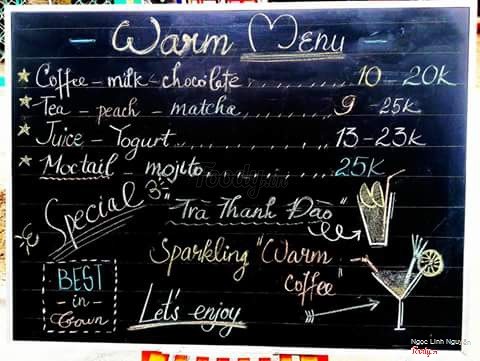 Warm Menu
Coffee - milk - chocolate ........ 10 - 20K
Tea - peach - matcha ........ 9 - 25K
Juice - Yogurt ........ 13 - 23K
Moctail - mojito ........ 25K
Special
"Trà Thanh Đào"
Sparkling "Warm
coffee"
BEST
- in -
Town
Let's enjoy
Foody.vn
Ngoc Linh Nguyễn
Foody.vn